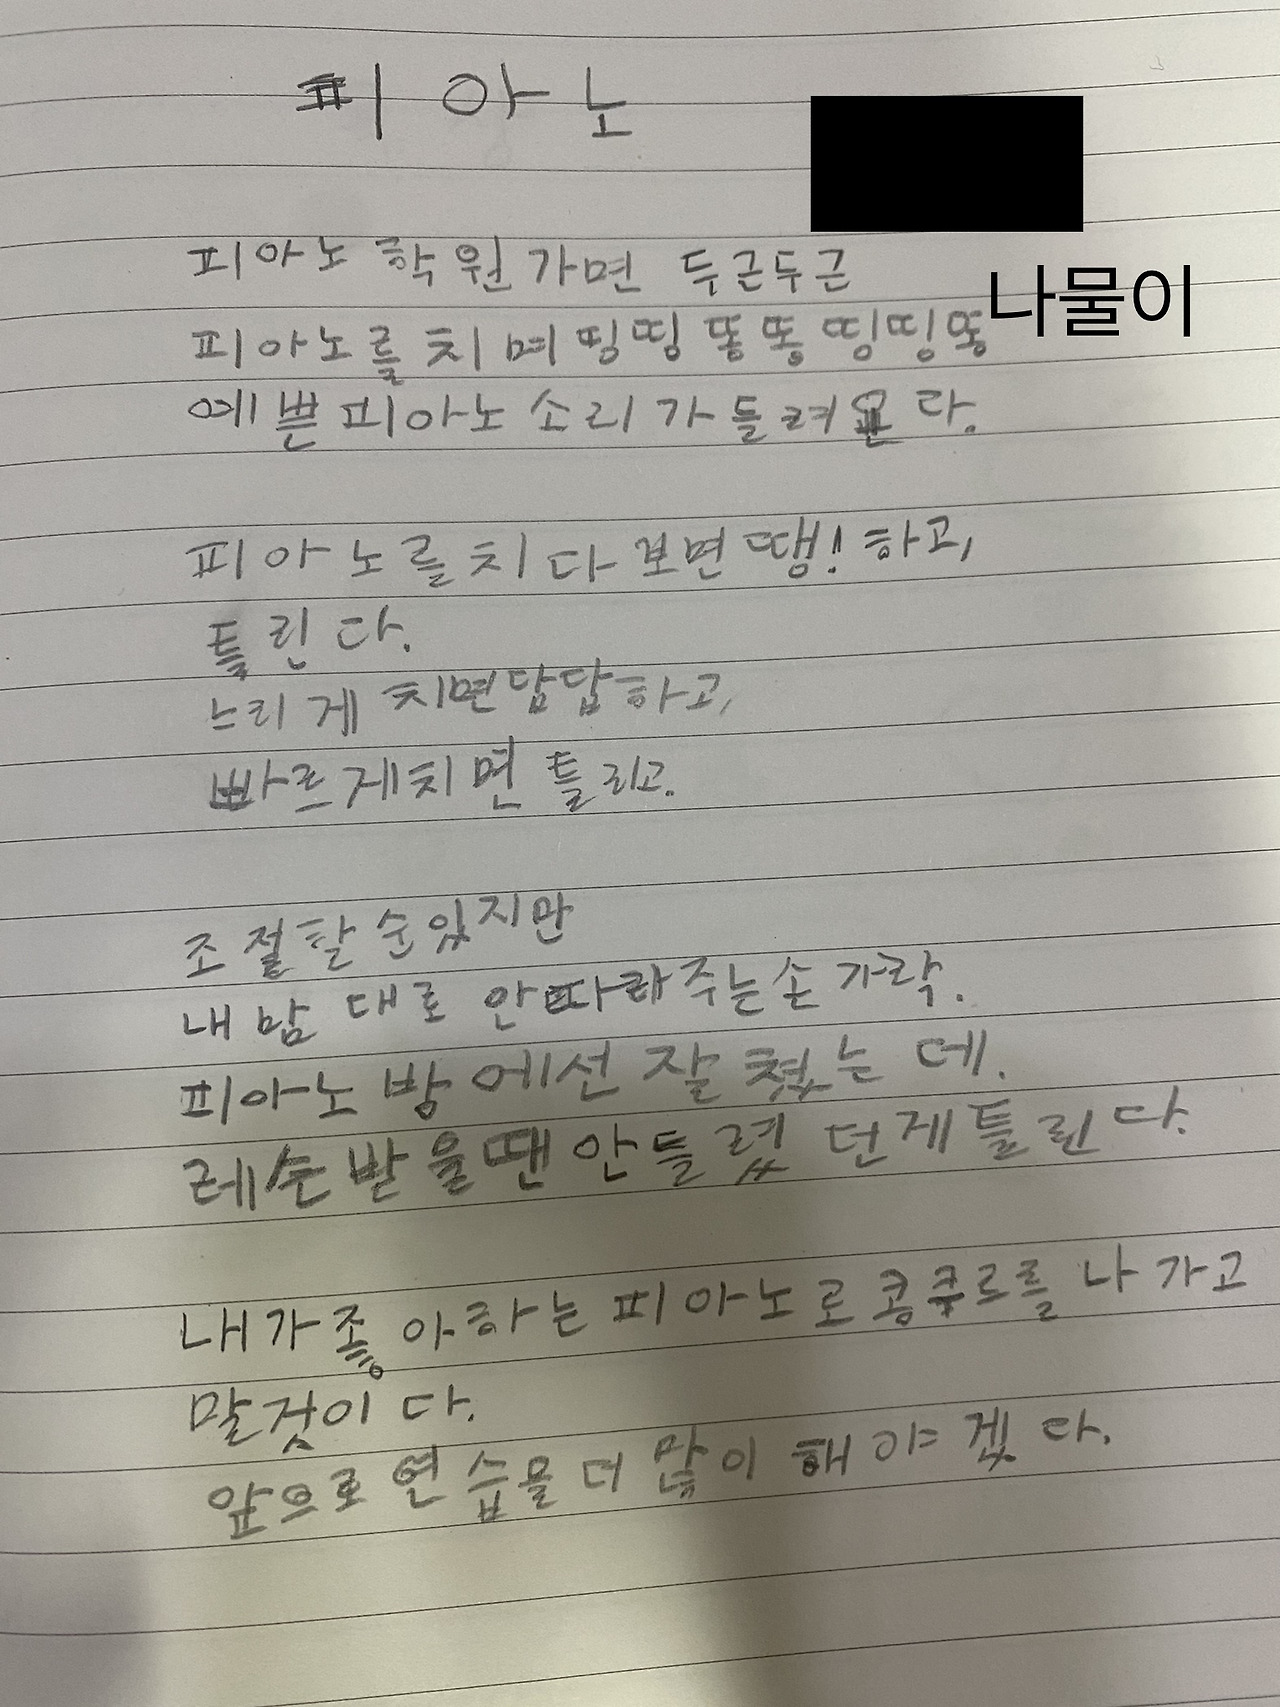 피아노
나물이
피아노 학원 가면 두근두근
피아노를 치며 띵띵 똥똥 띵띵똥
예쁜 피아노 소리가 들려온다.
피아노를 치다 보면 땡! 하고,
틀린다.
느리게 치면 답답하고,
빠르게 치면 틀리고.
조절할 순 있지만
내 맘대로 안 따라주는 손가락.
피아노 방에선 잘 쳤는데.
레슨 받을 땐 안 틀렸던 게 틀린다.
내가 좋아하는 피아노로 콩쿠르를 나가고
말 것이다.
앞으로 연습을 더 많이 해야겠다.